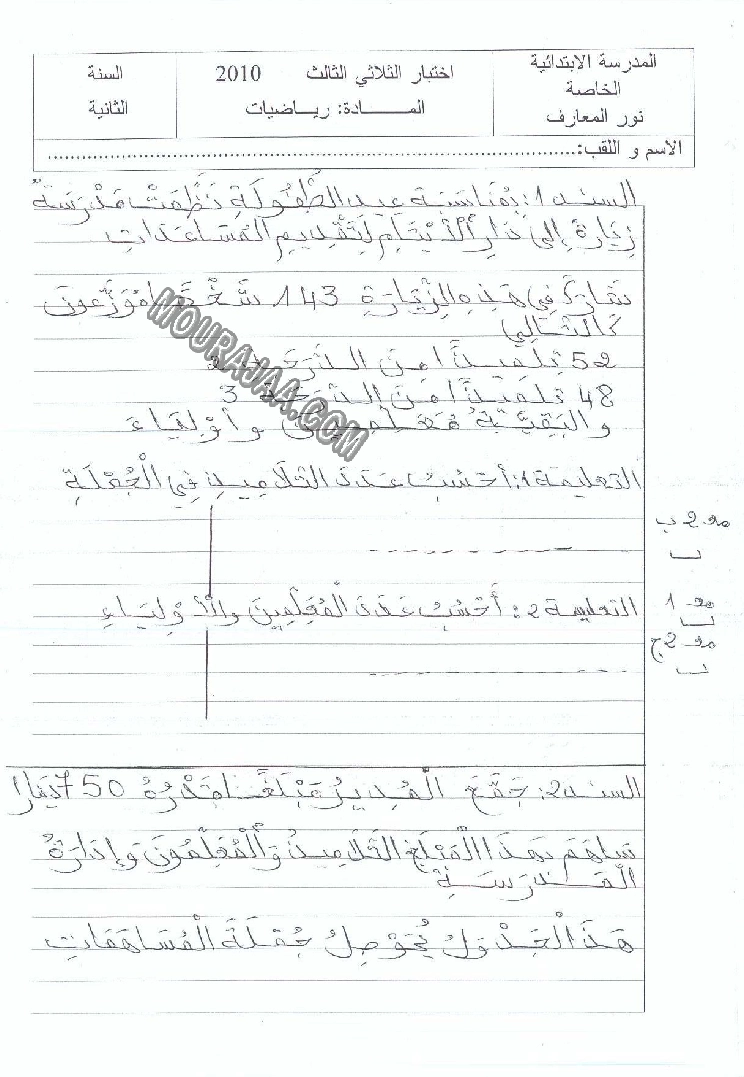 المدرسة الابتدائية
الخاصة
نور المعارف
اختبار الثلاثي الثالث 2010
المـــــادة: رياضيات
السنة
الثانية
الاسم و اللقب:
السند 1: بِمُنَاسَبَةِ عيد الطُّفُولَةِ نَظَّمَتْ مَدْرَسَةٌ
زِيَارَة إِلَى دَارِ الْأَيْتَامِ لِتَقْدِيمِ الْمُسَاعَدَاتِ
شَارَكَ فِي هَذِهِ الزِّيَارَةِ 143 شَخْصًا مُوَزَّعُونَ
كَالتَّالِي
52 تِلْمِيذًا مِنَ الدَّرَجَةِ 2
48 تلميذًا مِنَ الدَّرَجَةِ 3
والبَقِيَّةُ مُعَلِّمِينَ وأوْلِيَاءَ
التعليمة 1: أَحْسُبُ عَدَدَ التَّلَامِيذِ فِي الْجُمْلَةِ
مع 2 ب
مع 1
التعليمة 2: أَحْسُبُ عَدَدَ الْمُعَلِّمِينَ والْأَوْلِيَاءِ
مع 2 ج
السند 2: جَمَّعَ الْمُدِيرُ مَبْلَغًا قَدْرُهُ 750 دِينَارًا
سَاهَمَ بِهَذَا الْمَبْلَغِ التَّلَامِيذُ وَالْمُعَلِّمُونَ وَإِدَارَةُ
الْمَدْرَسَةِ
هَذَا الْجَدْوَلُ يُحَوْصِلُ جُمْلَةَ الْمُسَاهَمَاتِ
MOURAJAA.COM